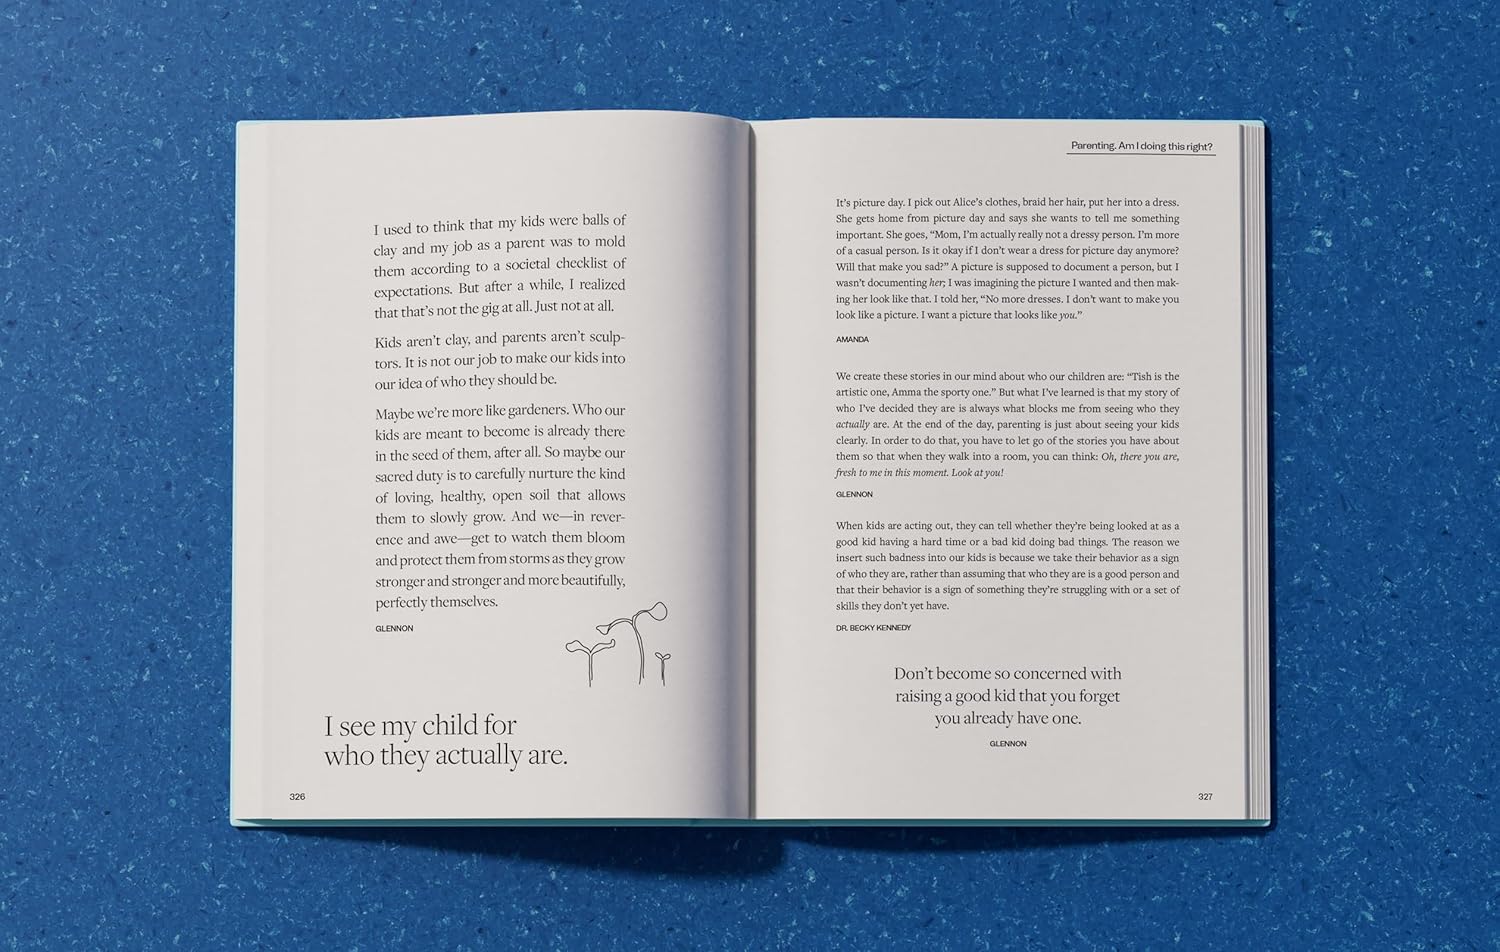 I used to think that my kids were balls of
clay and my job as a parent was to mold
them according to a societal checklist of
expectations. But after a while, I realized
that that’s not the gig at all. Just not at all.
Kids aren’t clay, and parents aren’t sculp-
tors. It is not our job to make our kids into
our idea of who they should be.
Maybe we’re more like gardeners. Who our
kids are meant to become is already there
in the seed of them, after all. So maybe our
sacred duty is to carefully nurture the kind
of loving, healthy, open soil that allows
them to slowly grow. And we—in rever-
ence and awe—get to watch them bloom
and protect them from storms as they grow
stronger and stronger and more beautifully,
perfectly themselves.
GLENNON
I see my child for
who they actually are.
326
Parenting. Am I doing this right?
It’s picture day. I pick out Alice’s clothes, braid her hair, put her into a dress.
She gets home from picture day and says she wants to tell me something
important. She goes, “Mom, I’m actually really not a dressy person. I’m more
of a casual person. Is it okay if I don’t wear a dress for picture day anymore?
Will that make you sad?” A picture is supposed to document a person, but I
wasn’t documenting her; I was imagining the picture I wanted and then mak-
ing her look like that. I told her, “No more dresses. I don’t want to make you
look like a picture. I want a picture that looks like you.”
AMANDA
We create these stories in our mind about who our children are: “Tish is the
artistic one, Amma the sporty one.” But what I’ve learned is that my story of
who I’ve decided they are is always what blocks me from seeing who they
actually are. At the end of the day, parenting is just about seeing your kids
clearly. In order to do that, you have to let go of the stories you have about
them so that when they walk into a room, you can think: Oh, there you are,
fresh to me in this moment. Look at you!
GLENNON
When kids are acting out, they can tell whether they’re being looked at as a
good kid having a hard time or a bad kid doing bad things. The reason we
insert such badness into our kids is because we take their behavior as a sign
of who they are, rather than assuming that who they are is a good person and
that their behavior is a sign of something they’re struggling with or a set of
skills they don’t yet have.
DR. BECKY KENNEDY
Don’t become so concerned with
raising a good kid that you forget
you already have one.
GLENNON
327